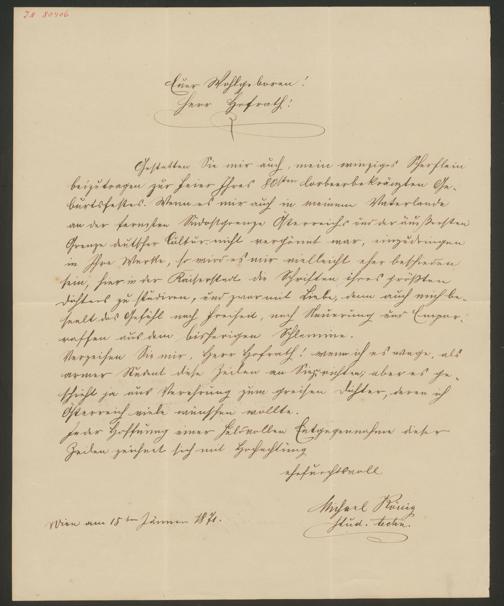 I.N. 80406
Euer Wohlgeboren!
Herr Hofrath!
Gestatten Sie mir auch, mein winziges Scherflein
beizutragen zur Feier Ihres 80sten lorbeerbekränzten Ge-
burtsfestes. Wenn es mir auch in meinem Vaterlande
an der fernsten Südostgrenze Österreichs und der äußersten
Grenze deutscher Cultur nicht vergönnt war, einzudringen
in Ihre Werke, so wird es mir vielleicht eher beschieden
sein, hier in der Kaiserstadt die Schriften ihres größten
Dichters zu studiren, und zwar mit Liebe, denn auch mich be-
seelt das Gefühl nach Freiheit, nach Neuerung und Empor-
raffen aus dem bisherigen Schlamme.
Verzeihen Sie mir, Herr Hofrath! wenn ich es wage, als
armer Student diese Zeilen an Sie zu richten, aber es ge-
schieht ja aus Verehrung zum greisen Dichter, deren ich
Österreich viele wünschen wollte.
In der Hoffnung einer huldvollen Entgegennahme dieser
Zeilen zeichnet sich mit Hochachtung
ehrfurchtsvoll
Michael König
stud. techn.
Wien am 15ten Jänner 1871.